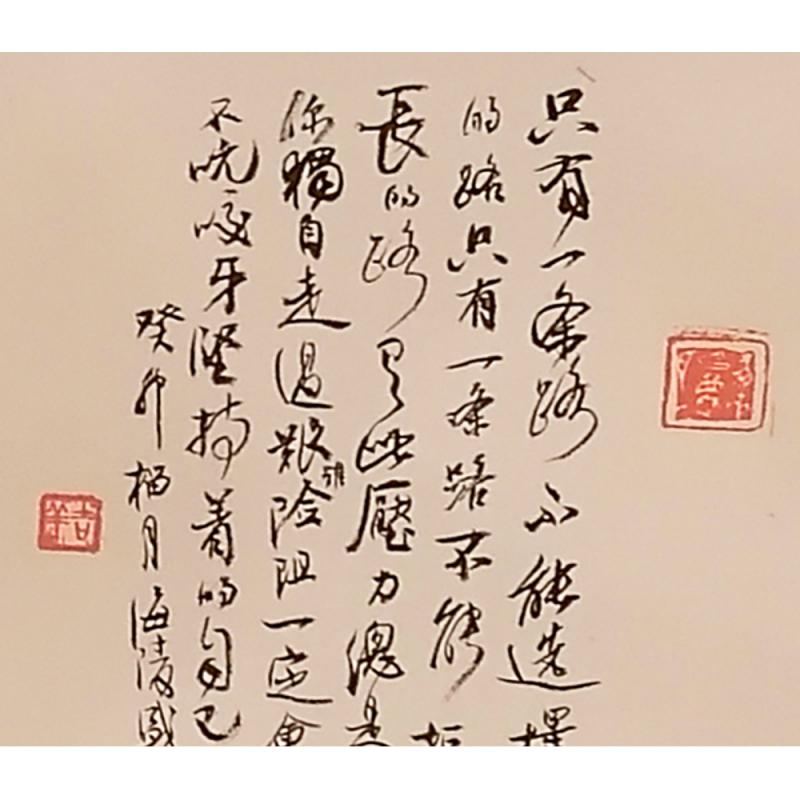 只有一条路不能选擇
的路只有一条路不能拒
長的路有些壓力總是
你獨自走過艱難險阻一定會
不吭咬牙堅持着的自己
癸卯 月海陵